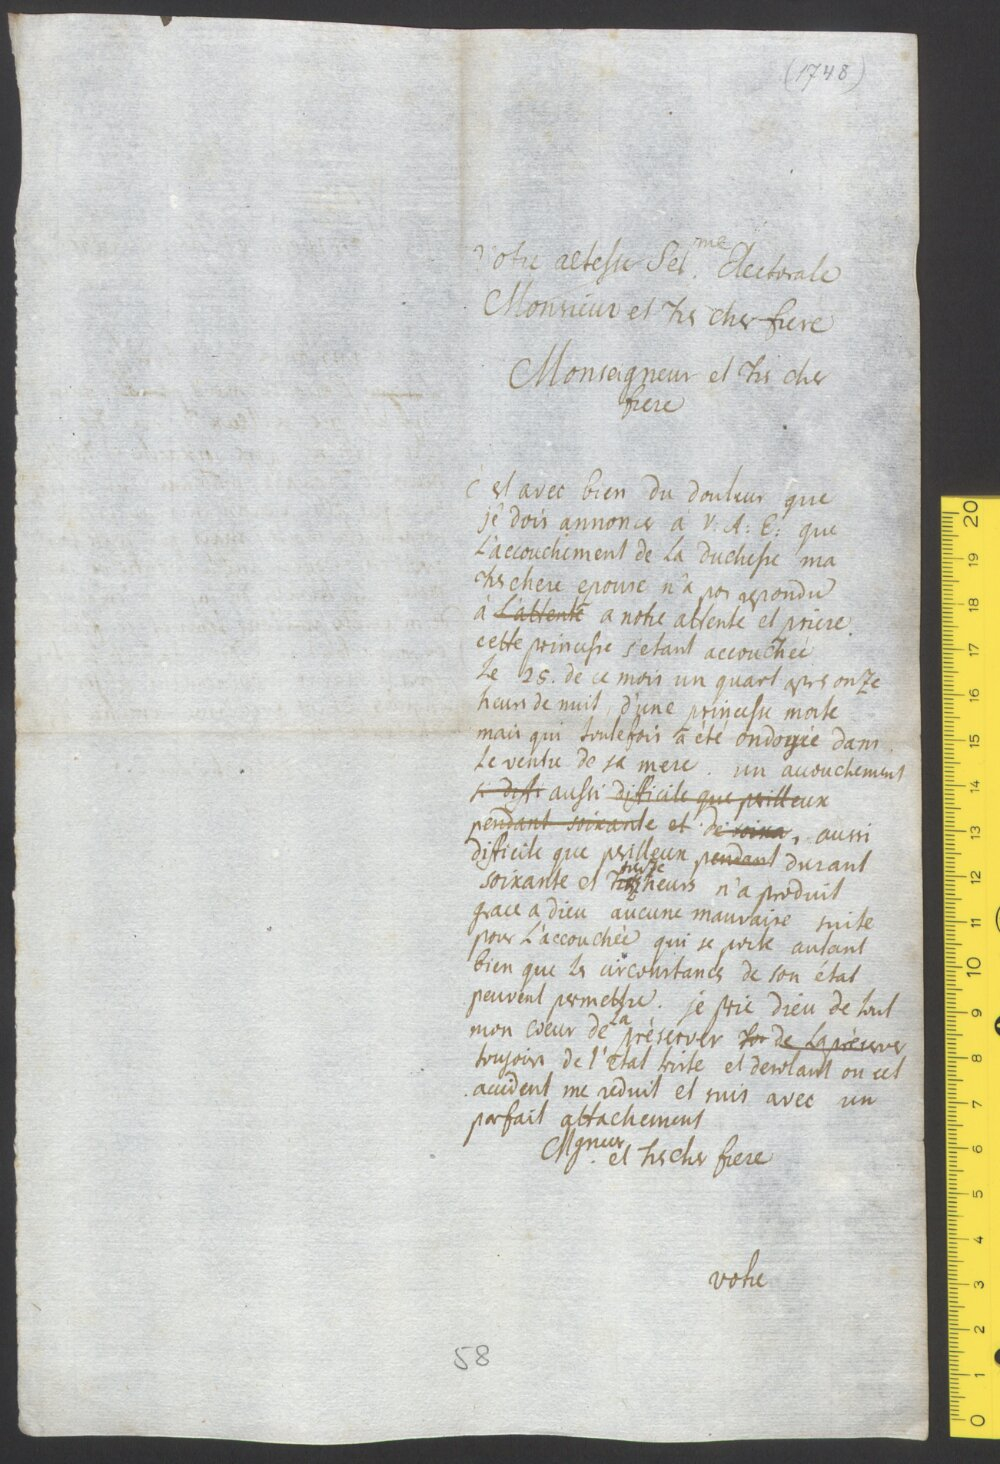 (1748)
Votre altesse Ser.me Electorale
Monsieur et tres cher frere
Monseigneur et tres cher
frere
C'est avec bien du douleur que
je dois annoncer a V: A: E: que
L'accouchement de la Duchesse ma
tres chere epouse n'a pas repondu
à L'attente a notre attente et priere.
cette princesse s'etant accouchée
Le 25. de ce mois un quart apres onze
heurs de nuit, d'une princesse morte
mais qui toutefois a été ondoyée dans
Le ventre de sa mere. un accouchement
si diffi aussi difficile que perilleux
pendant soixante et de soixa, aussi
difficile que perilleux pendant durant
soixante et treize heurs n'a produit
grace a dieu aucune mauvaise suite
pour L'accouchée qui se porte autant
bien que les circonstances de son état
peuvent permettre. je prie dieu de tout
mon coeur de La préserver de La préserver
toujours de l'etat triste et desolant ou cet
accident me reduit et suis avec un
parfait attachement
Mgneur et tres cher frere
votre
58
20
19
18
17
16
15
14
13
12
11
10
9
8
7
6
5
4
3
2
1
0